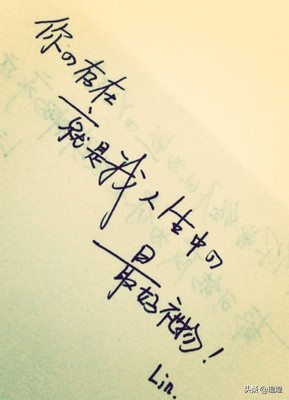 你の存在
就是我人生中の
最好礼物!
Lin.
头条@瑝瑝